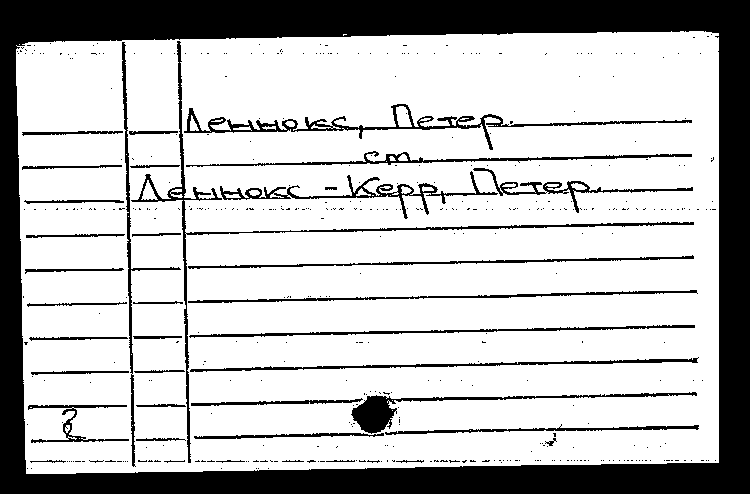 Леннокс, Петер.
ст.
Леннокс - Керр, Петер.
2